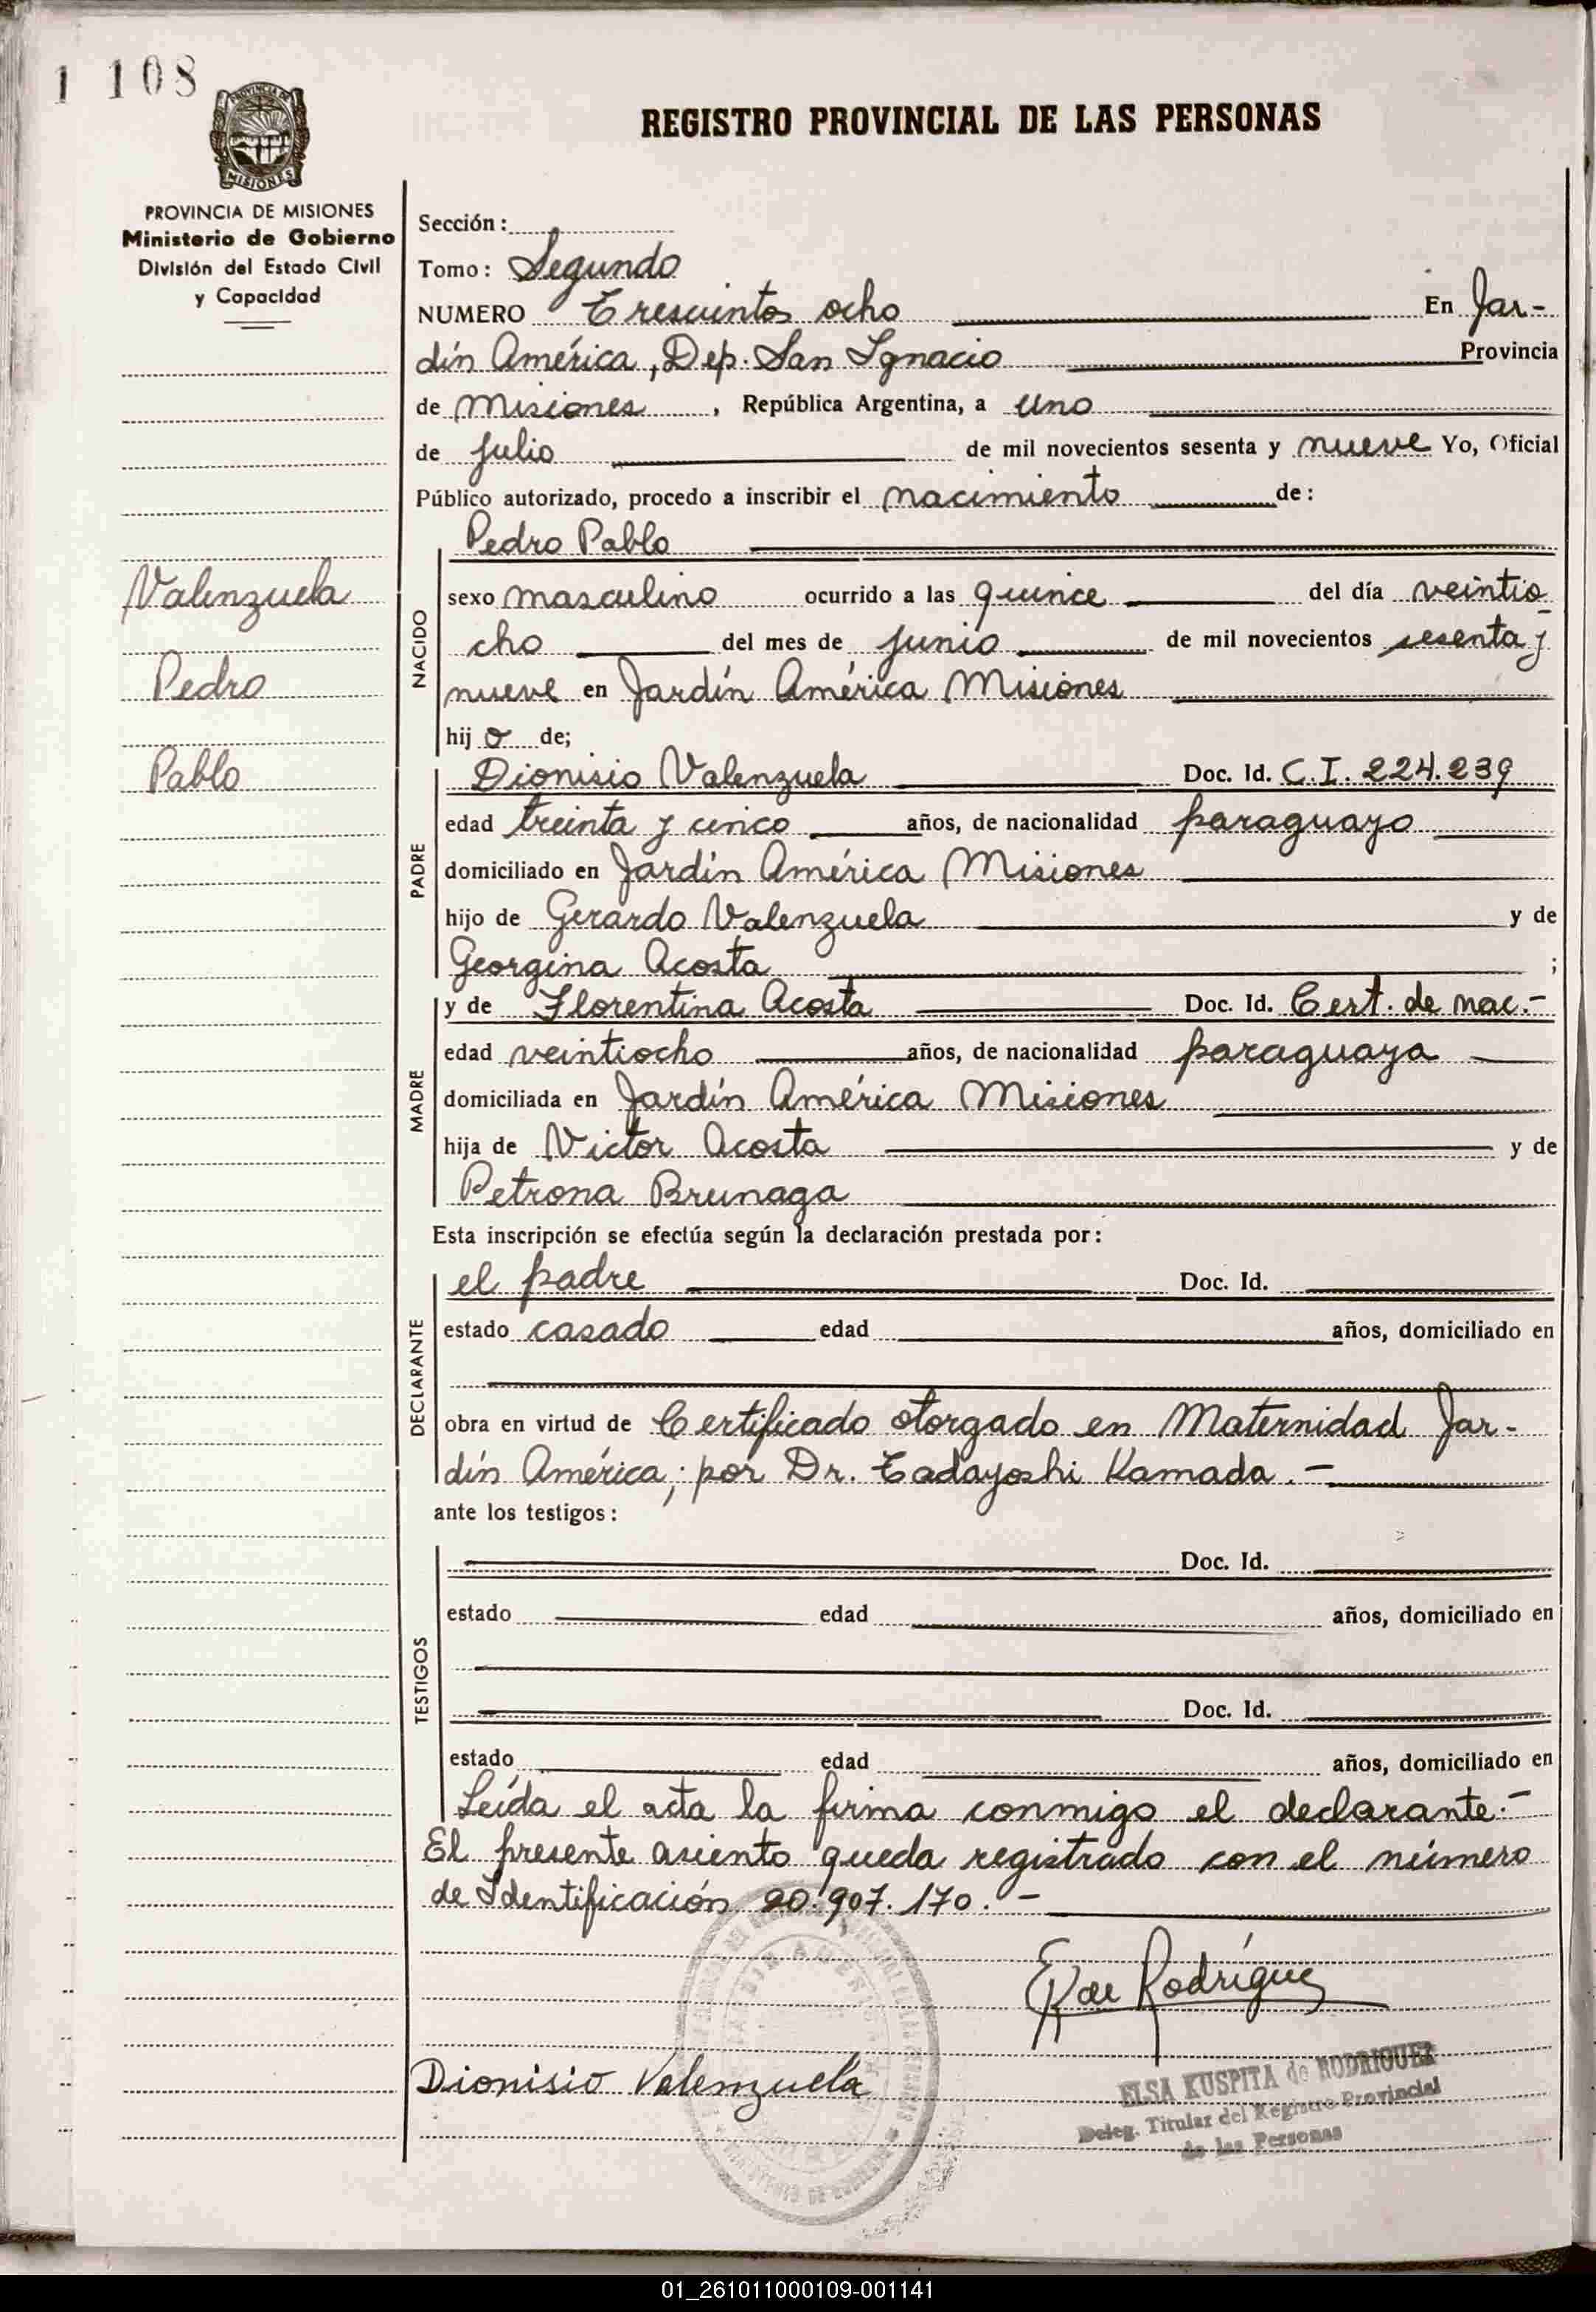 1 108
PROVINCIA DE
MISIONES
REGISTRO PROVINCIAL DE LAS PERSONAS
PROVINCIA DE MISIONES
Ministerio de Gobierno
División del Estado Civil
y Capacidad
Valenzuela
Pedro
Pablo
Sección:
Tomo: Segundo
NUMERO Trescientos ocho En Jar-
dín América, Dep. San Ignacio Provincia
de Misiones, República Argentina, a uno
de julio de mil novecientos sesenta y nueve Yo, Oficial
Público autorizado, procedo a inscribir el nacimiento de:
Pedro Pablo
NACIDO
sexo masculino ocurrido a las quince del día veintio-
cho del mes de junio de mil novecientos sesenta y
nueve en Jardín América Misiones
hij o de;
PADRE
Dionisio Valenzuela Doc. Id. C.I. 224.239
edad treinta y cinco años, de nacionalidad paraguayo
domiciliado en Jardín América Misiones
hijo de Gerardo Valenzuela y de
Georgina Acosta ;
MADRE
y de Florentina Acosta Doc. Id. Cert. de nac.-
edad veintiocho años, de nacionalidad paraguaya
domiciliada en Jardín América Misiones
hija de Victor Acosta y de
Petrona Brunaga
Esta inscripción se efectúa según la declaración prestada por:
DECLARANTE
el padre Doc. Id.
estado casado edad años, domiciliado en
obra en virtud de Certificado otorgado en Maternidad Jar-
dín América; por Dr. Tadayoshi Kamada.-
ante los testigos:
TESTIGOS
Doc. Id.
estado edad años, domiciliado en
Doc. Id.
estado edad años, domiciliado en
Leída el acta la firma conmigo el declarante.-
El presente asiento queda registrado con el número
de Identificación 20.907.170.-
Rodríguez
Dionisio Valenzuela
ELSA KUSPITA de RODRIGUEZ
Deleg. Titular del Registro Provincial
de las Personas
01_261011000109-001141